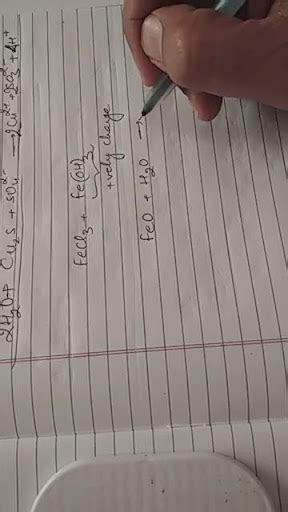 2H₂O + Cu₂S + SO₄²⁻ → 2Cu²⁺ + 2SO₃²⁻ + 4H⁺
FeCl₃ + Fe(OH)₃
+vely charge
FeO + H₂O →